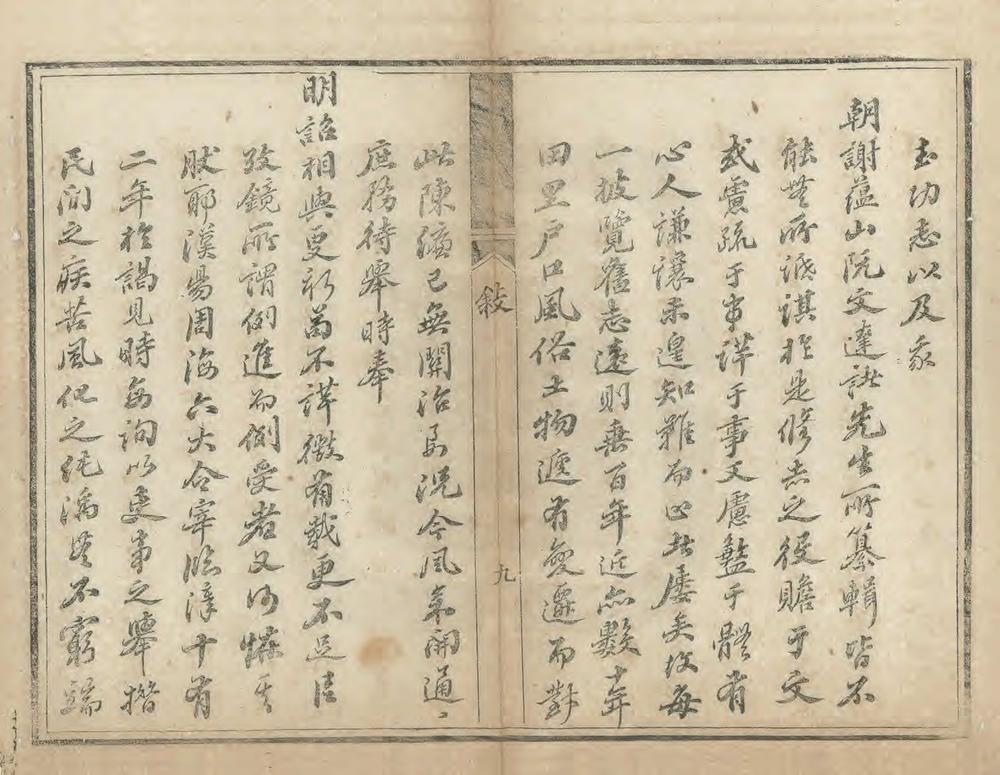 志以及我
朝謝蘊山阮文達諸先生所纂輯皆不
能無所詆諆於是修志之役贍于文
或慮疏于事詳于事又慮盭于體有
心人謙讓未遑知難而止者屢矣故每
一披覽舊志遠則垂百年近亦數十年
田里戶口風俗土物遞有變遷而對
敍
九
此陳編已無關治忽況今風氣開通、
庶務待舉時奉
明詔相與更新苟不詳徵有載更不足
鏡所謂例進而例受者又何
耶漢陽周海六大令宰臨漳十有
二年於謁見時每詢以吏事之舉措
民間之疾苦風化之純漓無不窮端